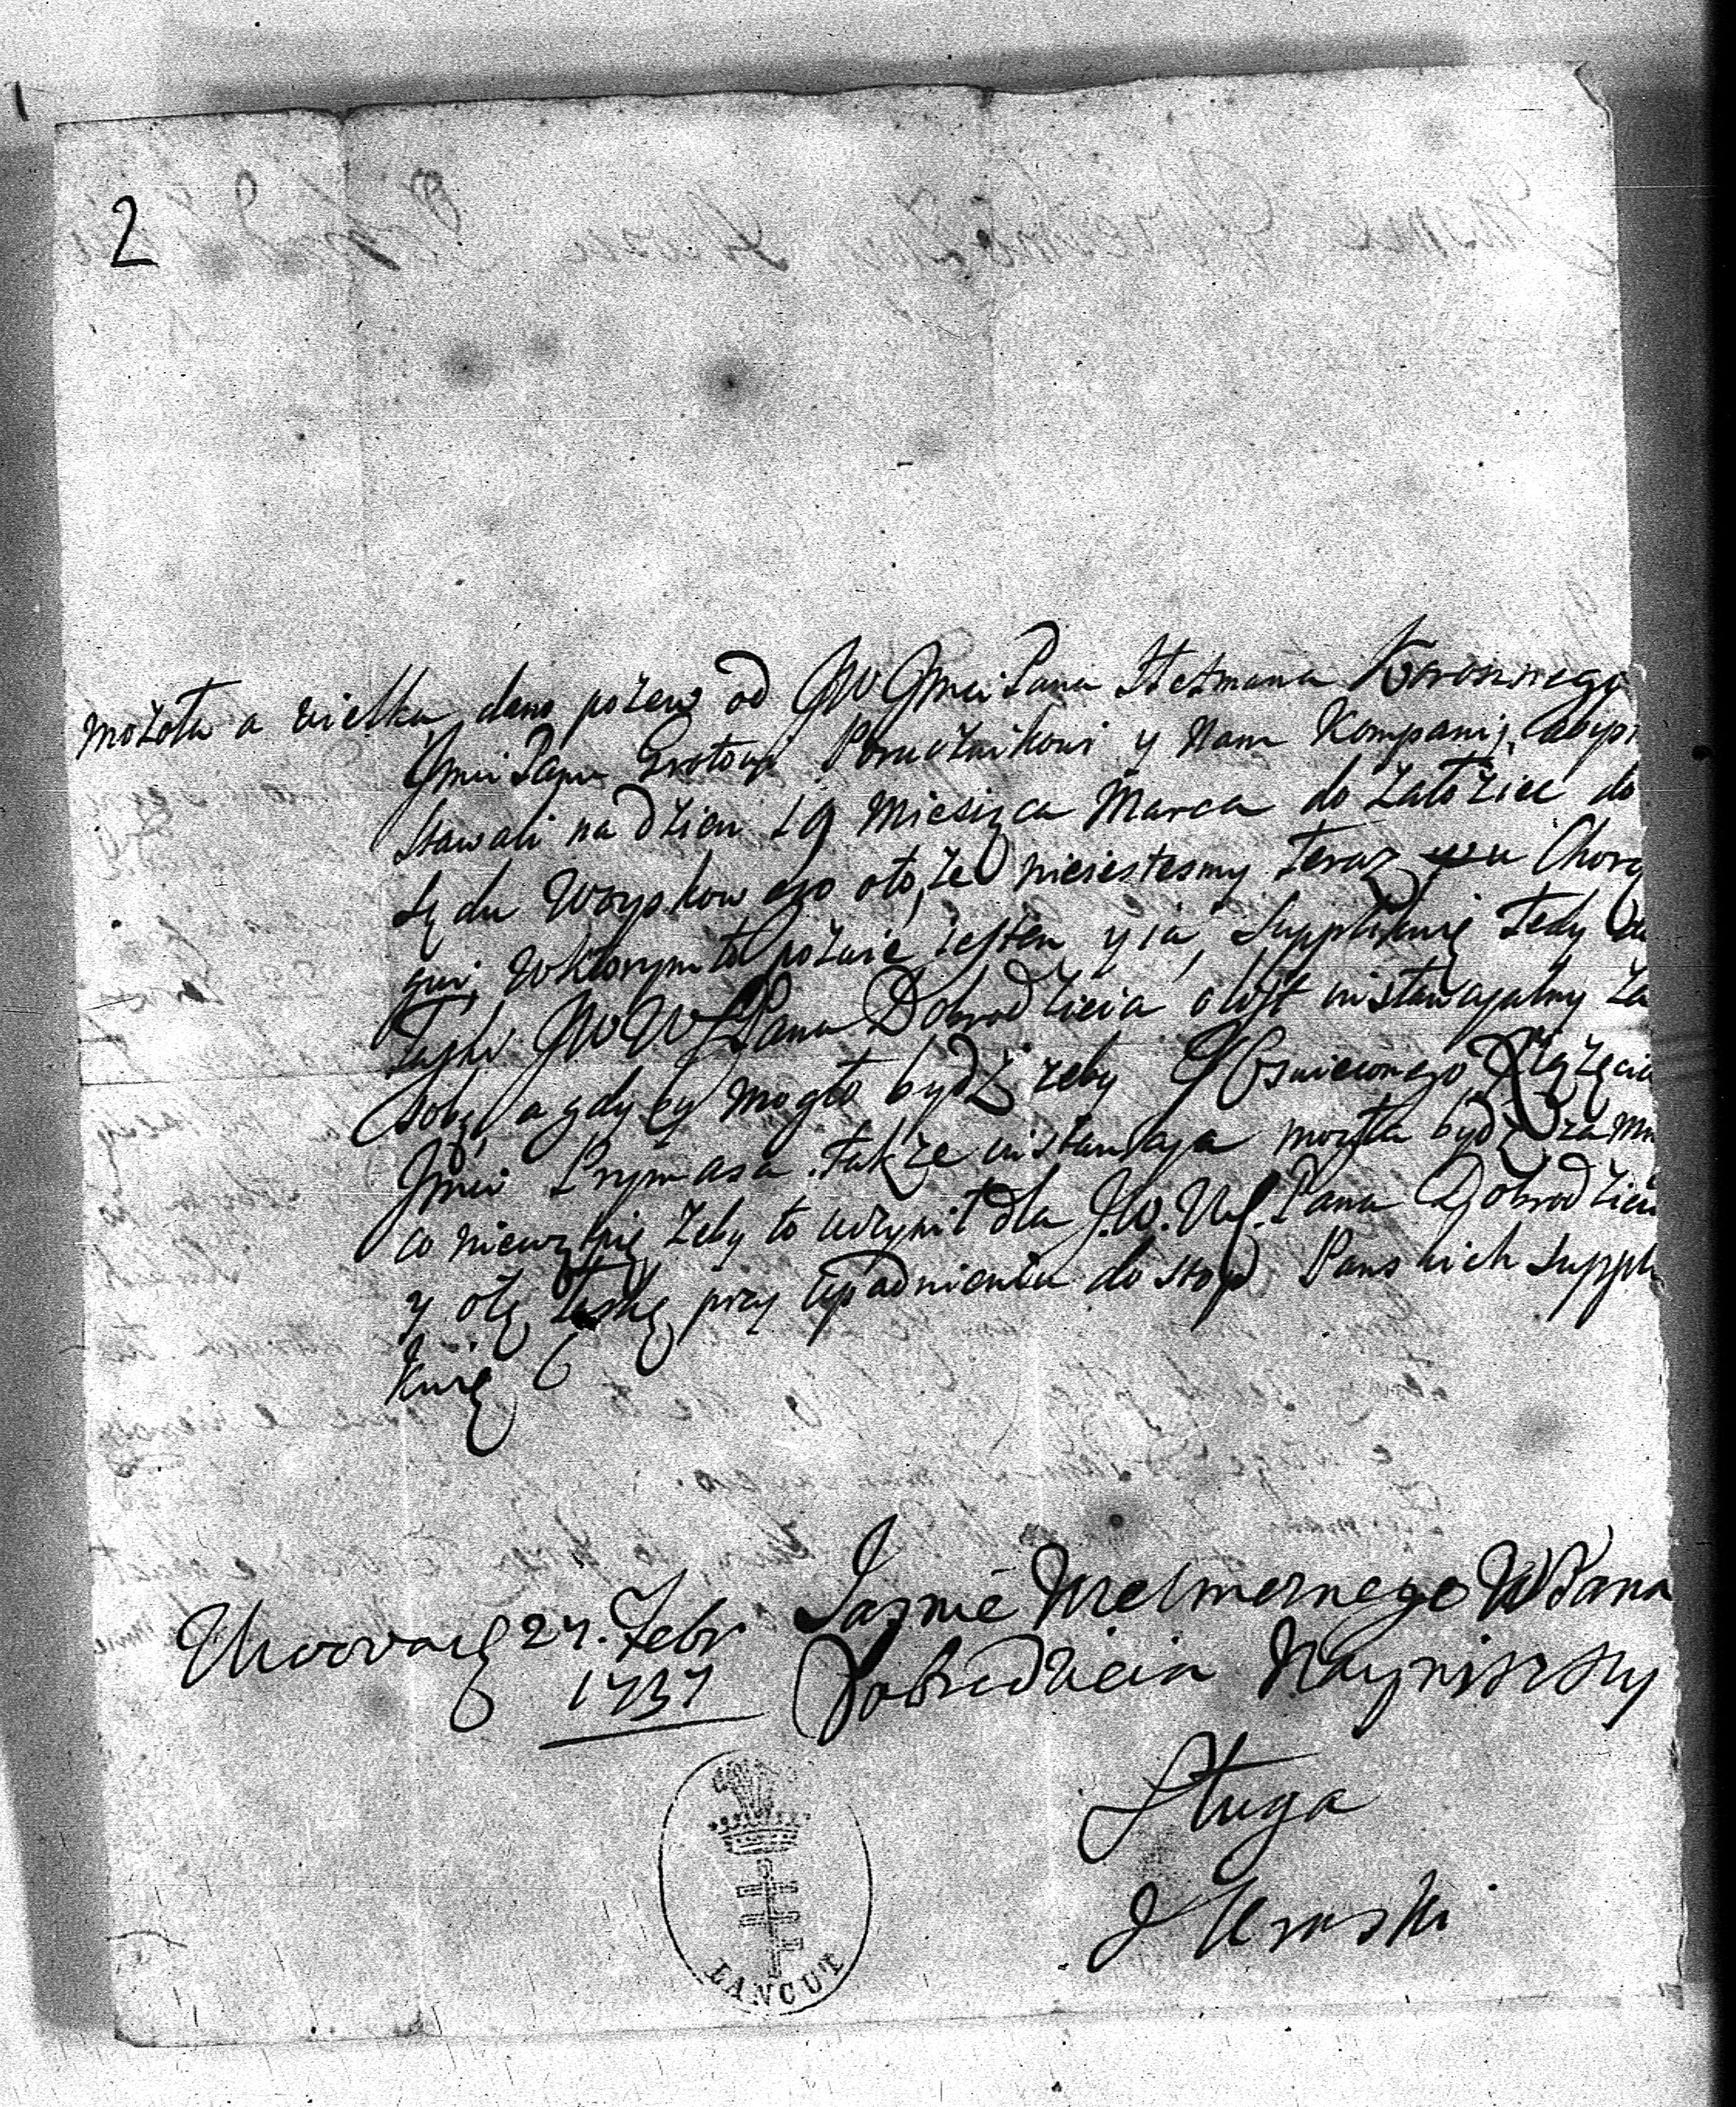 2
możota a wielka, dano pozew od JW JmciPana Hetmana Koronnego
JmciPanu Porucznikowi y nam Kompanij, aby
stawali na dzien 19 Miesiąca Marca do Załoziec do
Sądu Woyskowego oto, że niesiestesmy teraz u Chorą
gwi, wktorym to pozwie iestem y ia, supplikuię tedy
Łaski JWWPana Dobrodzieia o list instancyalny za
sobą, a gdyby mogło bydź zeby JOswieconego Xiążęcia
Jmci Prymasa także instancya mogła bydź za mn
co niewątpię żeby to uczynił dla J.W.W.Pana Dobrodzieia
y otę łaskę przy upadnieniu do stop Panskich suppli
kuię
27. Febr
1737
Jasnie Wielmoznego WPana
Dobrodzieia Nayniszszy
Sługa
J Uruski
ŁAŃCUT